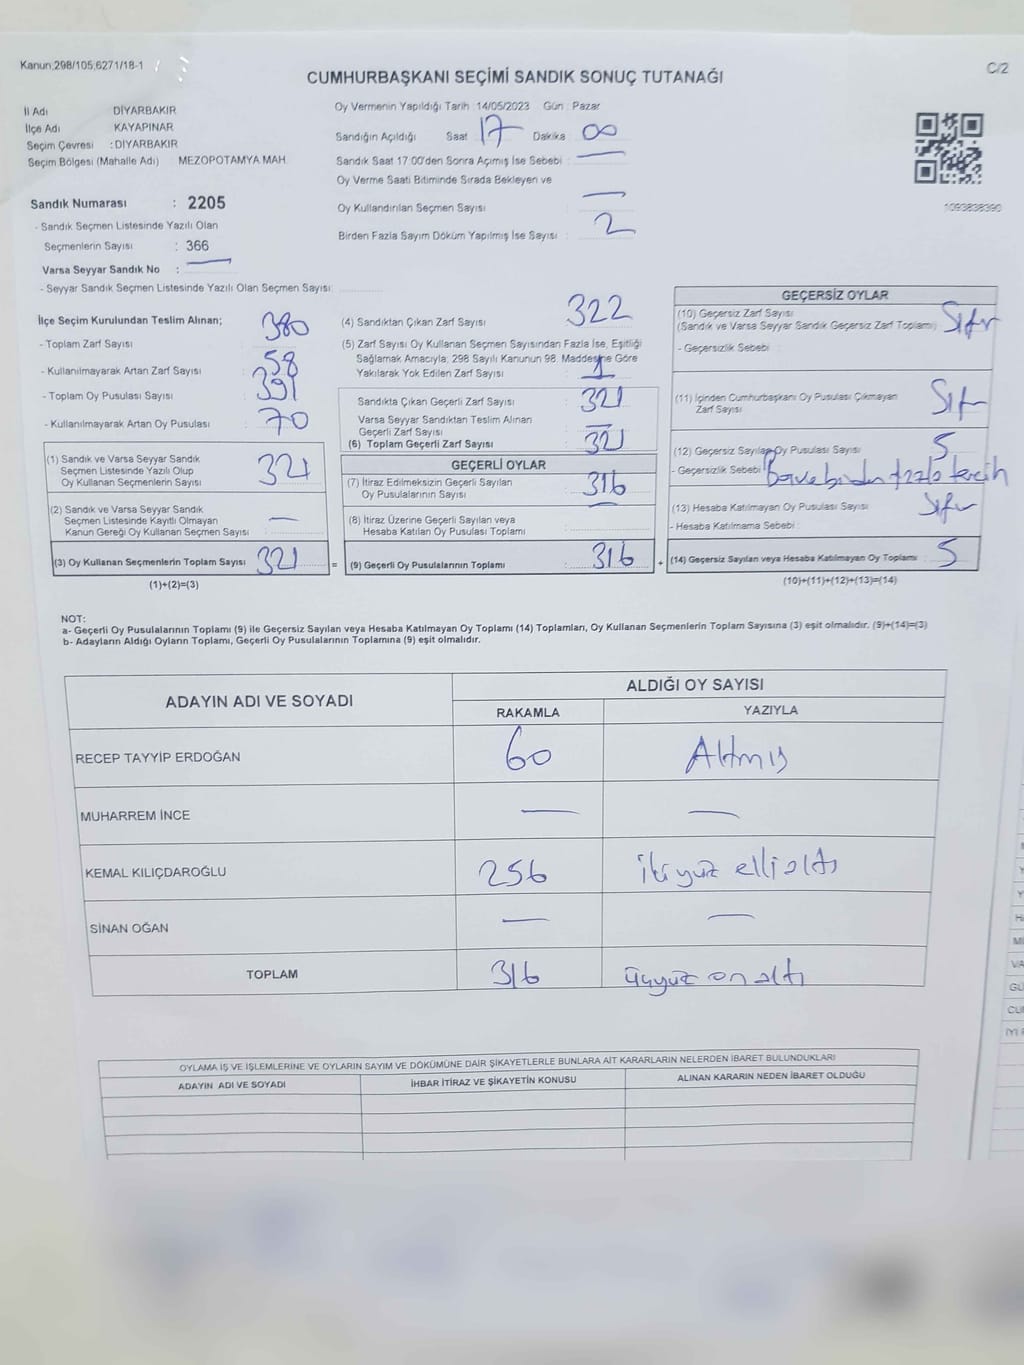 Kanun;298/105,6271/18-1
C/2
CUMHURBAŞKANI SEÇİMİ SANDIK SONUÇ TUTANAĞI
İl Adı DİYARBAKIR
İlçe Adı KAYAPINAR
Seçim Çevresi : DİYARBAKIR
Seçim Bölgesi (Mahalle Adı) MEZOPOTAMYA MAH.
Oy Vermenin Yapıldığı Tarih : 14/05/2023 Gün : Pazar
Sandığın Açıldığı Saat 17 Dakika 00
Sandık Saat 17:00'den Sonra Açımış İse Sebebi : —
Oy Verme Saati Bitiminde Sırada Bekleyen ve
Oy Kullandırılan Seçmen Sayısı —
Birden Fazla Sayım Döküm Yapılmış İse Sayısı : 2
1093838390
Sandık Numarası : 2205
- Sandık Seçmen Listesinde Yazılı Olan
Seçmenlerin Sayısı : 366
Varsa Seyyar Sandık No : —
- Seyyar Sandık Seçmen Listesinde Yazılı Olan Seçmen Sayısı:
İlçe Seçim Kurulundan Teslim Alınan;
- Toplam Zarf Sayısı : 380
- Kullanılmayarak Artan Zarf Sayısı : 58
- Toplam Oy Pusulası Sayısı : 391
- Kullanılmayarak Artan Oy Pusulası : 70
(1) Sandık ve Varsa Seyyar Sandık
Seçmen Listesinde Yazılı Olup
Oy Kullanan Seçmenlerin Sayısı 321
(2) Sandık ve Varsa Seyyar Sandık
Seçmen Listesinde Kayıtlı Olmayan
Kanun Gereği Oy Kullanan Seçmen Sayısı : —
(3) Oy Kullanan Seçmenlerin Toplam Sayısı 321 =
(1)+(2)=(3)
(4) Sandıktan Çıkan Zarf Sayısı : 322
(5) Zarf Sayısı Oy Kullanan Seçmen Sayısından Fazla İse, Eşitliği
Sağlamak Amacıyla, 298 Sayılı Kanunun 98. Maddesine Göre
Yakılarak Yok Edilen Zarf Sayısı : 1
Sandıkta Çıkan Geçerli Zarf Sayısı : 321
Varsa Seyyar Sandıktan Teslim Alınan
Geçerli Zarf Sayısı : —
(6) Toplam Geçerli Zarf Sayısı : 321
GEÇERLİ OYLAR
(7) İtiraz Edilmeksizin Geçerli Sayılan
Oy Pusulalarının Sayısı : 316
(8) İtiraz Üzerine Geçerli Sayılan veya
Hesaba Katılan Oy Pusulası Toplamı
(9) Geçerli Oy Pusulalarının Toplamı : 316 +
GEÇERSİZ OYLAR
(10) Geçersiz Zarf Sayısı
(Sandık ve Varsa Seyyar Sandık Geçersiz Zarf Toplamı) : Sıfır
- Geçersizlik Sebebi :
(11) İçinden Cumhurbaşkanı Oy Pusulası Çıkmayan
Zarf Sayısı : Sıfır
(12) Geçersiz Sayılan Oy Pusulası Sayısı : 5
- Geçersizlik Sebebi fazla tercih
(13) Hesaba Katılmayan Oy Pusulası Sayısı : Sıfır
- Hesaba Katılmama Sebebi :
(14) Geçersiz Sayılan veya Hesaba Katılmayan Oy Toplamı : 5
(10)+(11)+(12)+(13)=(14)
NOT:
a- Geçerli Oy Pusulalarının Toplamı (9) ile Geçersiz Sayılan veya Hesaba Katılmayan Oy Toplamı (14) Toplamları, Oy Kullanan Seçmenlerin Toplam Sayısına (3) eşit olmalıdır. (9)+(14)=(3)
b- Adayların Aldığı Oyların Toplamı, Geçerli Oy Pusulalarının Toplamına (9) eşit olmalıdır.
ADAYIN ADI VE SOYADI
ALDIĞI OY SAYISI
RAKAMLA YAZIYLA
RECEP TAYYİP ERDOĞAN 60 Altmış
MUHARREM İNCE — —
KEMAL KILIÇDAROĞLU 256 ikiyüz elli altı
SİNAN OĞAN — —
TOPLAM 316 üçyüz on altı
OYLAMA İŞ VE İŞLEMLERİNE VE OYLARIN SAYIM VE DÖKÜMÜNE DAİR ŞİKAYETLERLE BUNLARA AİT KARARLARIN NELERDEN İBARET BULUNDUKLARI
ADAYIN ADI VE SOYADI İHBAR İTİRAZ VE ŞİKAYETİN KONUSU ALINAN KARARIN NEDEN İBARET OLDUĞU